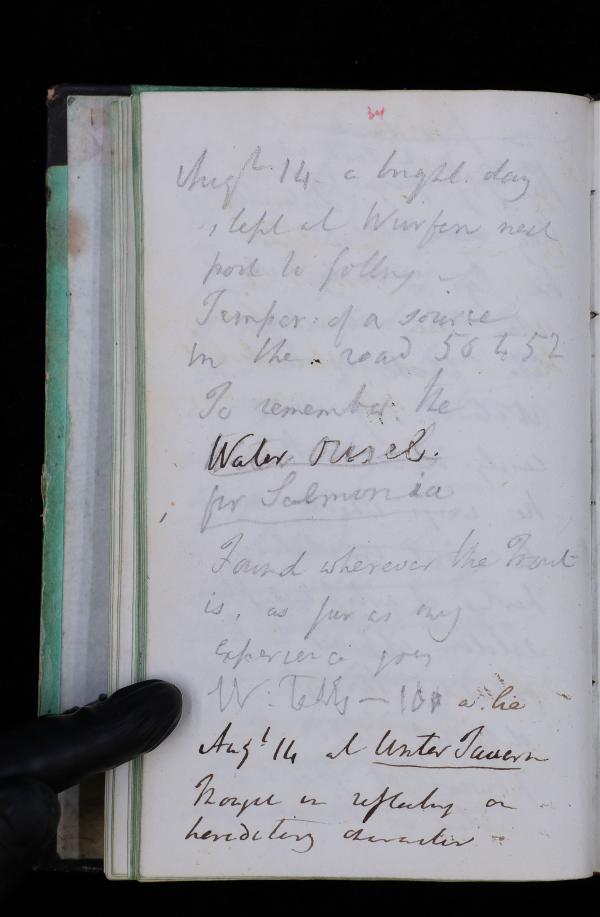 34
Augst 14. a bright day
slept at Wurfen next
post to Golling
Temper: of a source
in the road 50 to 52
To remember the
Water Ousel.
for Salmonia
Found wherever the Trout
is, as far as my
experience goes
W. 100 a lie
Augt 14 at Unter Tavern
in reflecting on
hereditary character